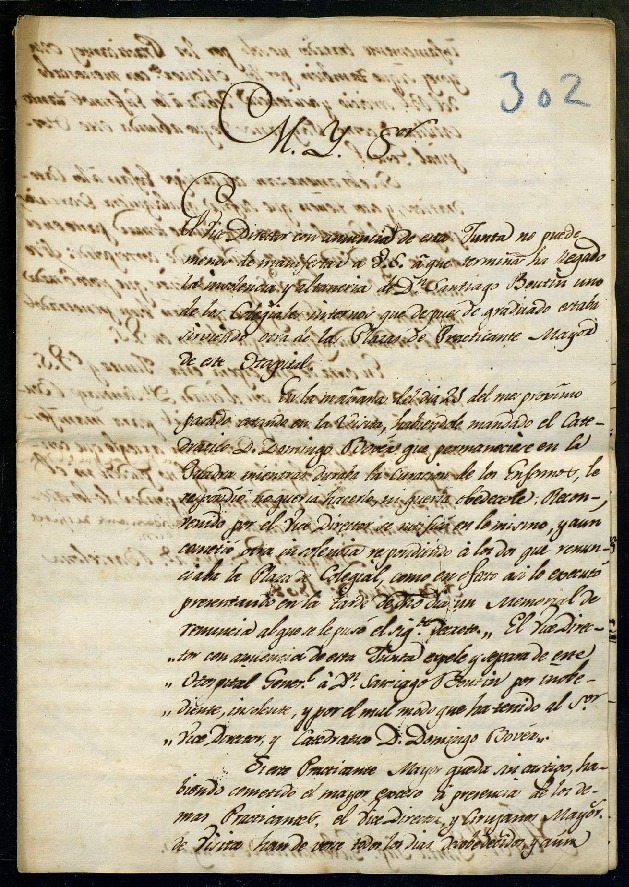 302
M. Y. Sor
El Vice Director con anuencia de esta Junta no puede
menos de manifestar a V.S. à que termino ha llegado
la insolencia y altaneria de Dn. Santiago Boutin uno
de los Colegiales internos que despues de graduado estaba
sirviendo una de las Plazas de Practicante Mayor
de este Ospital.
En la mañana del dia 21 del mes proximo
pasado estando en la Visita, habiendole mandado el Cate-
dratico D. Domingo Bover que permaneciese en la
Quadra mientras duraba la curacion de los Enfermos, le
respondió no queria hacerlo, ni queria obedecerle. Recon-
venido por el Vice Director se ratificó en lo mismo, y aun
cometió otra insolencia respondiendo à los dos que renun-
ciaba la Plaza de Colegial, como en efecto asi lo executó
presentando en la tarde de dho dia un Memorial de
renuncia al que se le puso el sigte. Decreto „ El Vice Direc-
„ tor con anuencia de esta Junta expele y separa de este
„ Ospital Generl. à Dn. Santiago Boutin por inobe-
„ diente, insolente, y por el mal modo que ha tenido al Sor
„ Vice Director, y Catedratico D. Domingo Bover„.
Si este Practicante Mayor queda sin castigo, ha-
biendo cometido el mayor exceso à presencia de los de-
mas Practicantes, el Vice Director y Cirujanos Mayors.
de Visita han de verse todos los dias desobedecidos, y aun